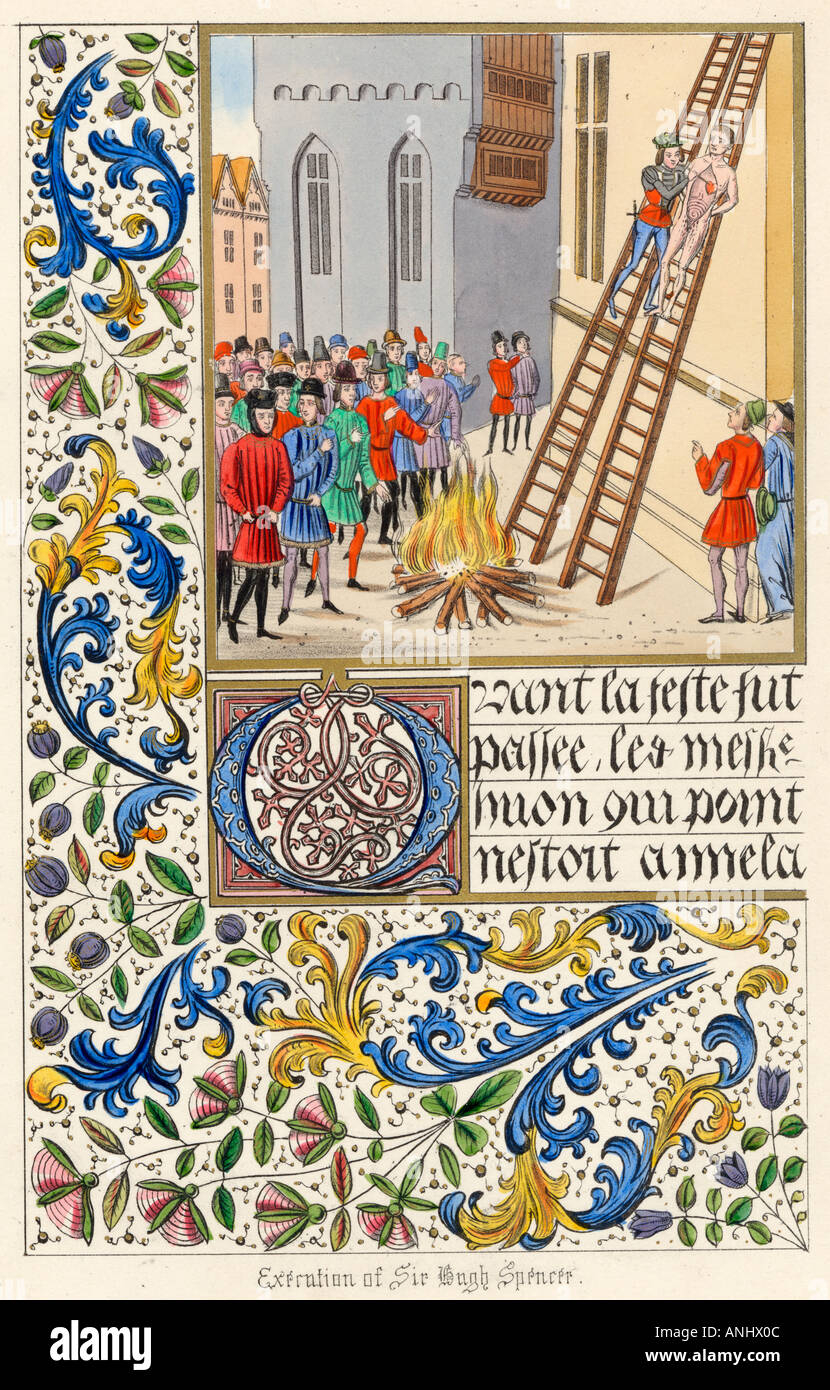 Quant la feste fut
passee, les mess.e
huon qui point
nestoit ammela
Execution of Sir Hugh Spencer.
alamy
Image ID: ANHX0C
www.alamy.com